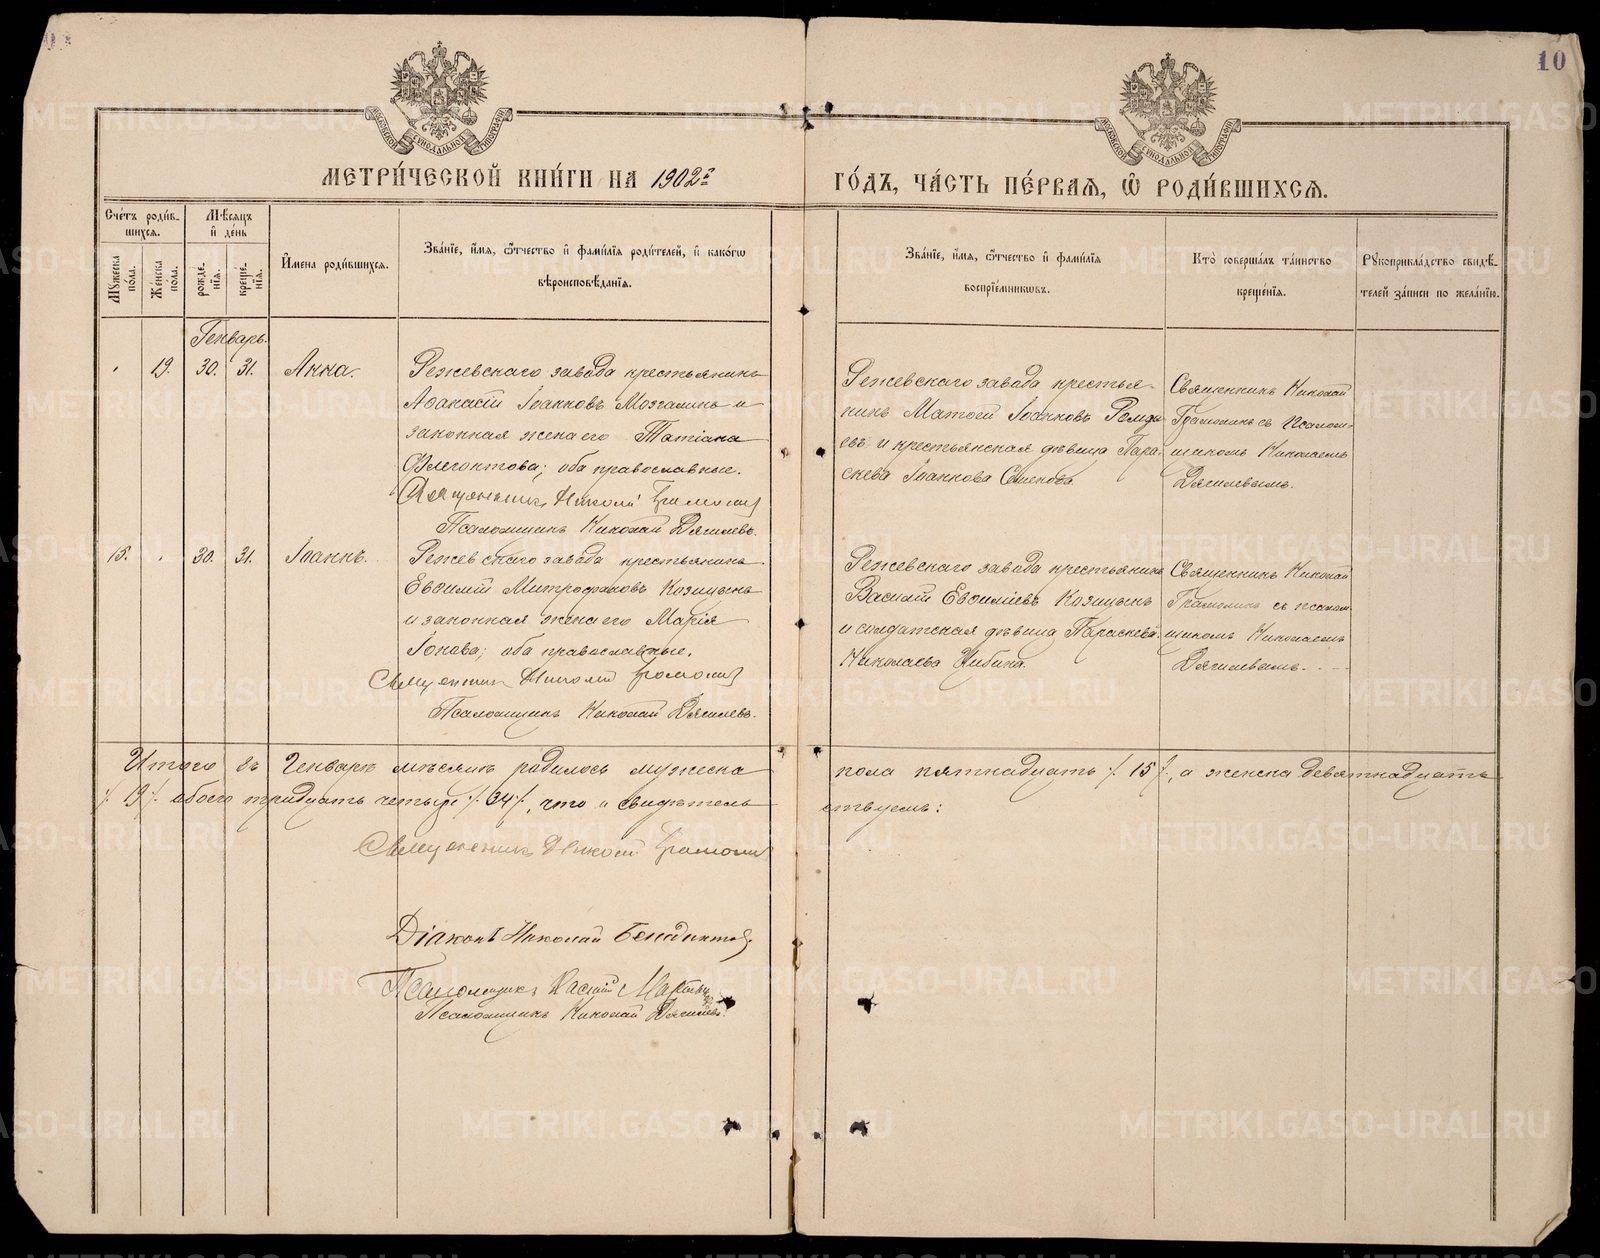 10
МОСКОВСКОЙ СѴНОДАЛЬНОЙ ТИПОГРАФІИ
МОСКОВСКОЙ СѴНОДАЛЬНОЙ ТИПОГРАФІИ
МЕТРИ́ЧЕСКОЙ КНИ́ГИ НА 1902й
ГО́ДЪ, ЧА́СТЬ ПЕ́РВАѦ, Ѿ РОДИ́ВШИХСѦ.
Сче́тъ роди́в-
шихсѧ.
Мꙋ́жеска по́ла.
Же́нска по́ла.
Мѣ́сѧцъ и҆ де́нь
рожде́-нїѧ.
креще́-нїѧ.
И҆мена̀ роди́вшихсѧ.
Зва́нїе, и҆́мѧ, ѻ҆́тчество и҆ фами́лїѧ роди́телей, и҆ како́гѡ
вѣроисповѣ́данїѧ.
Зва́нїе, и҆́мѧ, ѻ҆́тчество и҆ фами́лїѧ
воспрїе́мникѡвъ.
Кто̀ соверша́лъ та́инство
креще́нїѧ.
Рꙋкоприкла́дство свидѣ́-
телей за́писи по жела́нїю.
Генварь.
19. 30. 31. Анна.
Режевскаго завода крестьянинъ
Аѳанасій Іоанновъ Мозгалинъ и
законная жена его Татіана
Флегонтова; оба православные.
Священникъ Николай Грамолин
Псаломщикъ Николай Дягилевъ.
Режевскаго завода крестья-
нинъ Матѳей Іоанновъ
и крестьянская дѣвица Пара-
скева Іоаннова
Священникъ Николай
Грамолинъ съ псалом-
щикомъ Николаемъ
Дягилевымъ.
15. 30. 31. Іоаннъ.
Режевскаго завода крестьянинъ
Евѳимій Митрофановъ Козицынъ
и законная жена его Марія
Іонова; оба православные.
Священник Николай Грамолин
Псаломщикъ Николай Дягилевъ.
Режевскаго завода крестьянинъ
Василій Евѳиміевъ Козицынъ
и солдатская дѣвица Параскева
Николаева
Священникъ Николай
Грамолинъ съ псалом-
щикомъ Николаемъ
Дягилевымъ.
Итого въ Генварѣ мѣсяцѣ родилось мужеска пола пятнадцать /. 15 /., а женска девятнадцать
/. 19 /. обоего тридцать четыре /. 34 /., что и свидѣтель ствуемъ:
Священник Николай Грамолин
Діаконъ Николай Бенедиктов.
Псаломщикъ Василій
Псаломщикъ Николай Дягилевъ.
METRIKI.GASO-URAL.RU